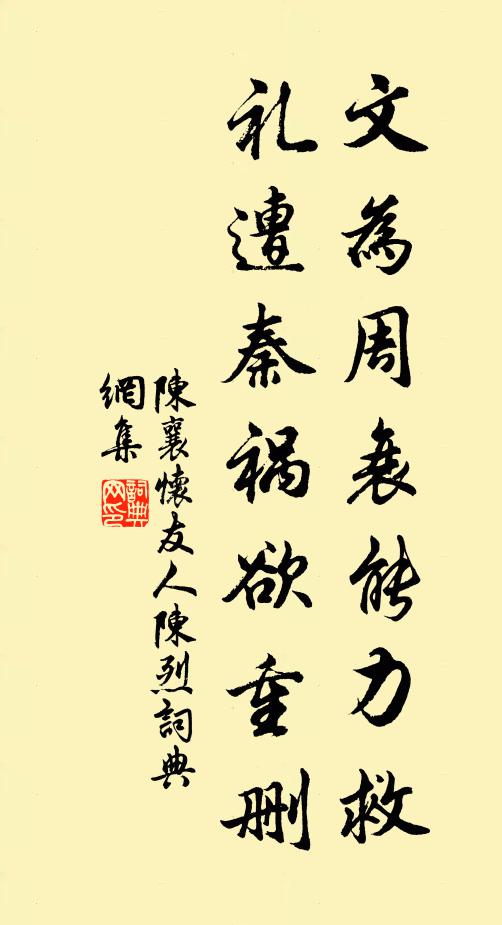 文為周衰能力救
礼遭秦禍欲重刪
陳襄懷友人陳烈詞典
網集
詞典
网印